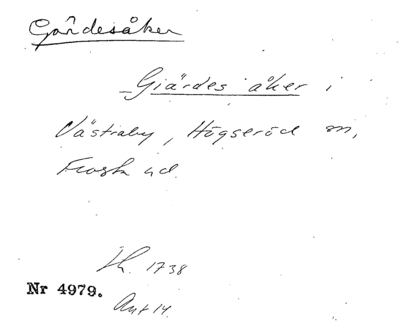 Gärdesåker
Giärdes åker i
Västraby, Högseröd sn,
Frosta hd.
Lh. 1738
Nr 4979.
Ant 14.